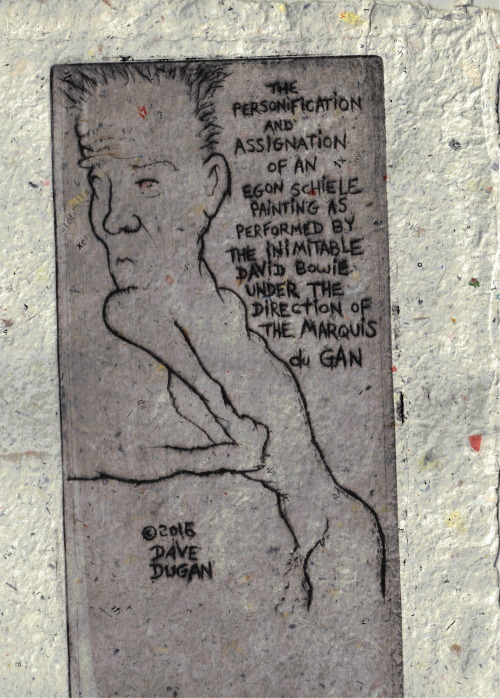 THE
PERSONiFiCATION
AND
ASSIGNATION
OF AN
EGON SCHiELE
PAINTING AS
PERFORMED BY
THE INIMITABLE
DAViD BOWiE
UNDER THE
DiRECTION OF
THE MARQUIS
du GAN
© 2016
DAVE
DUGAN